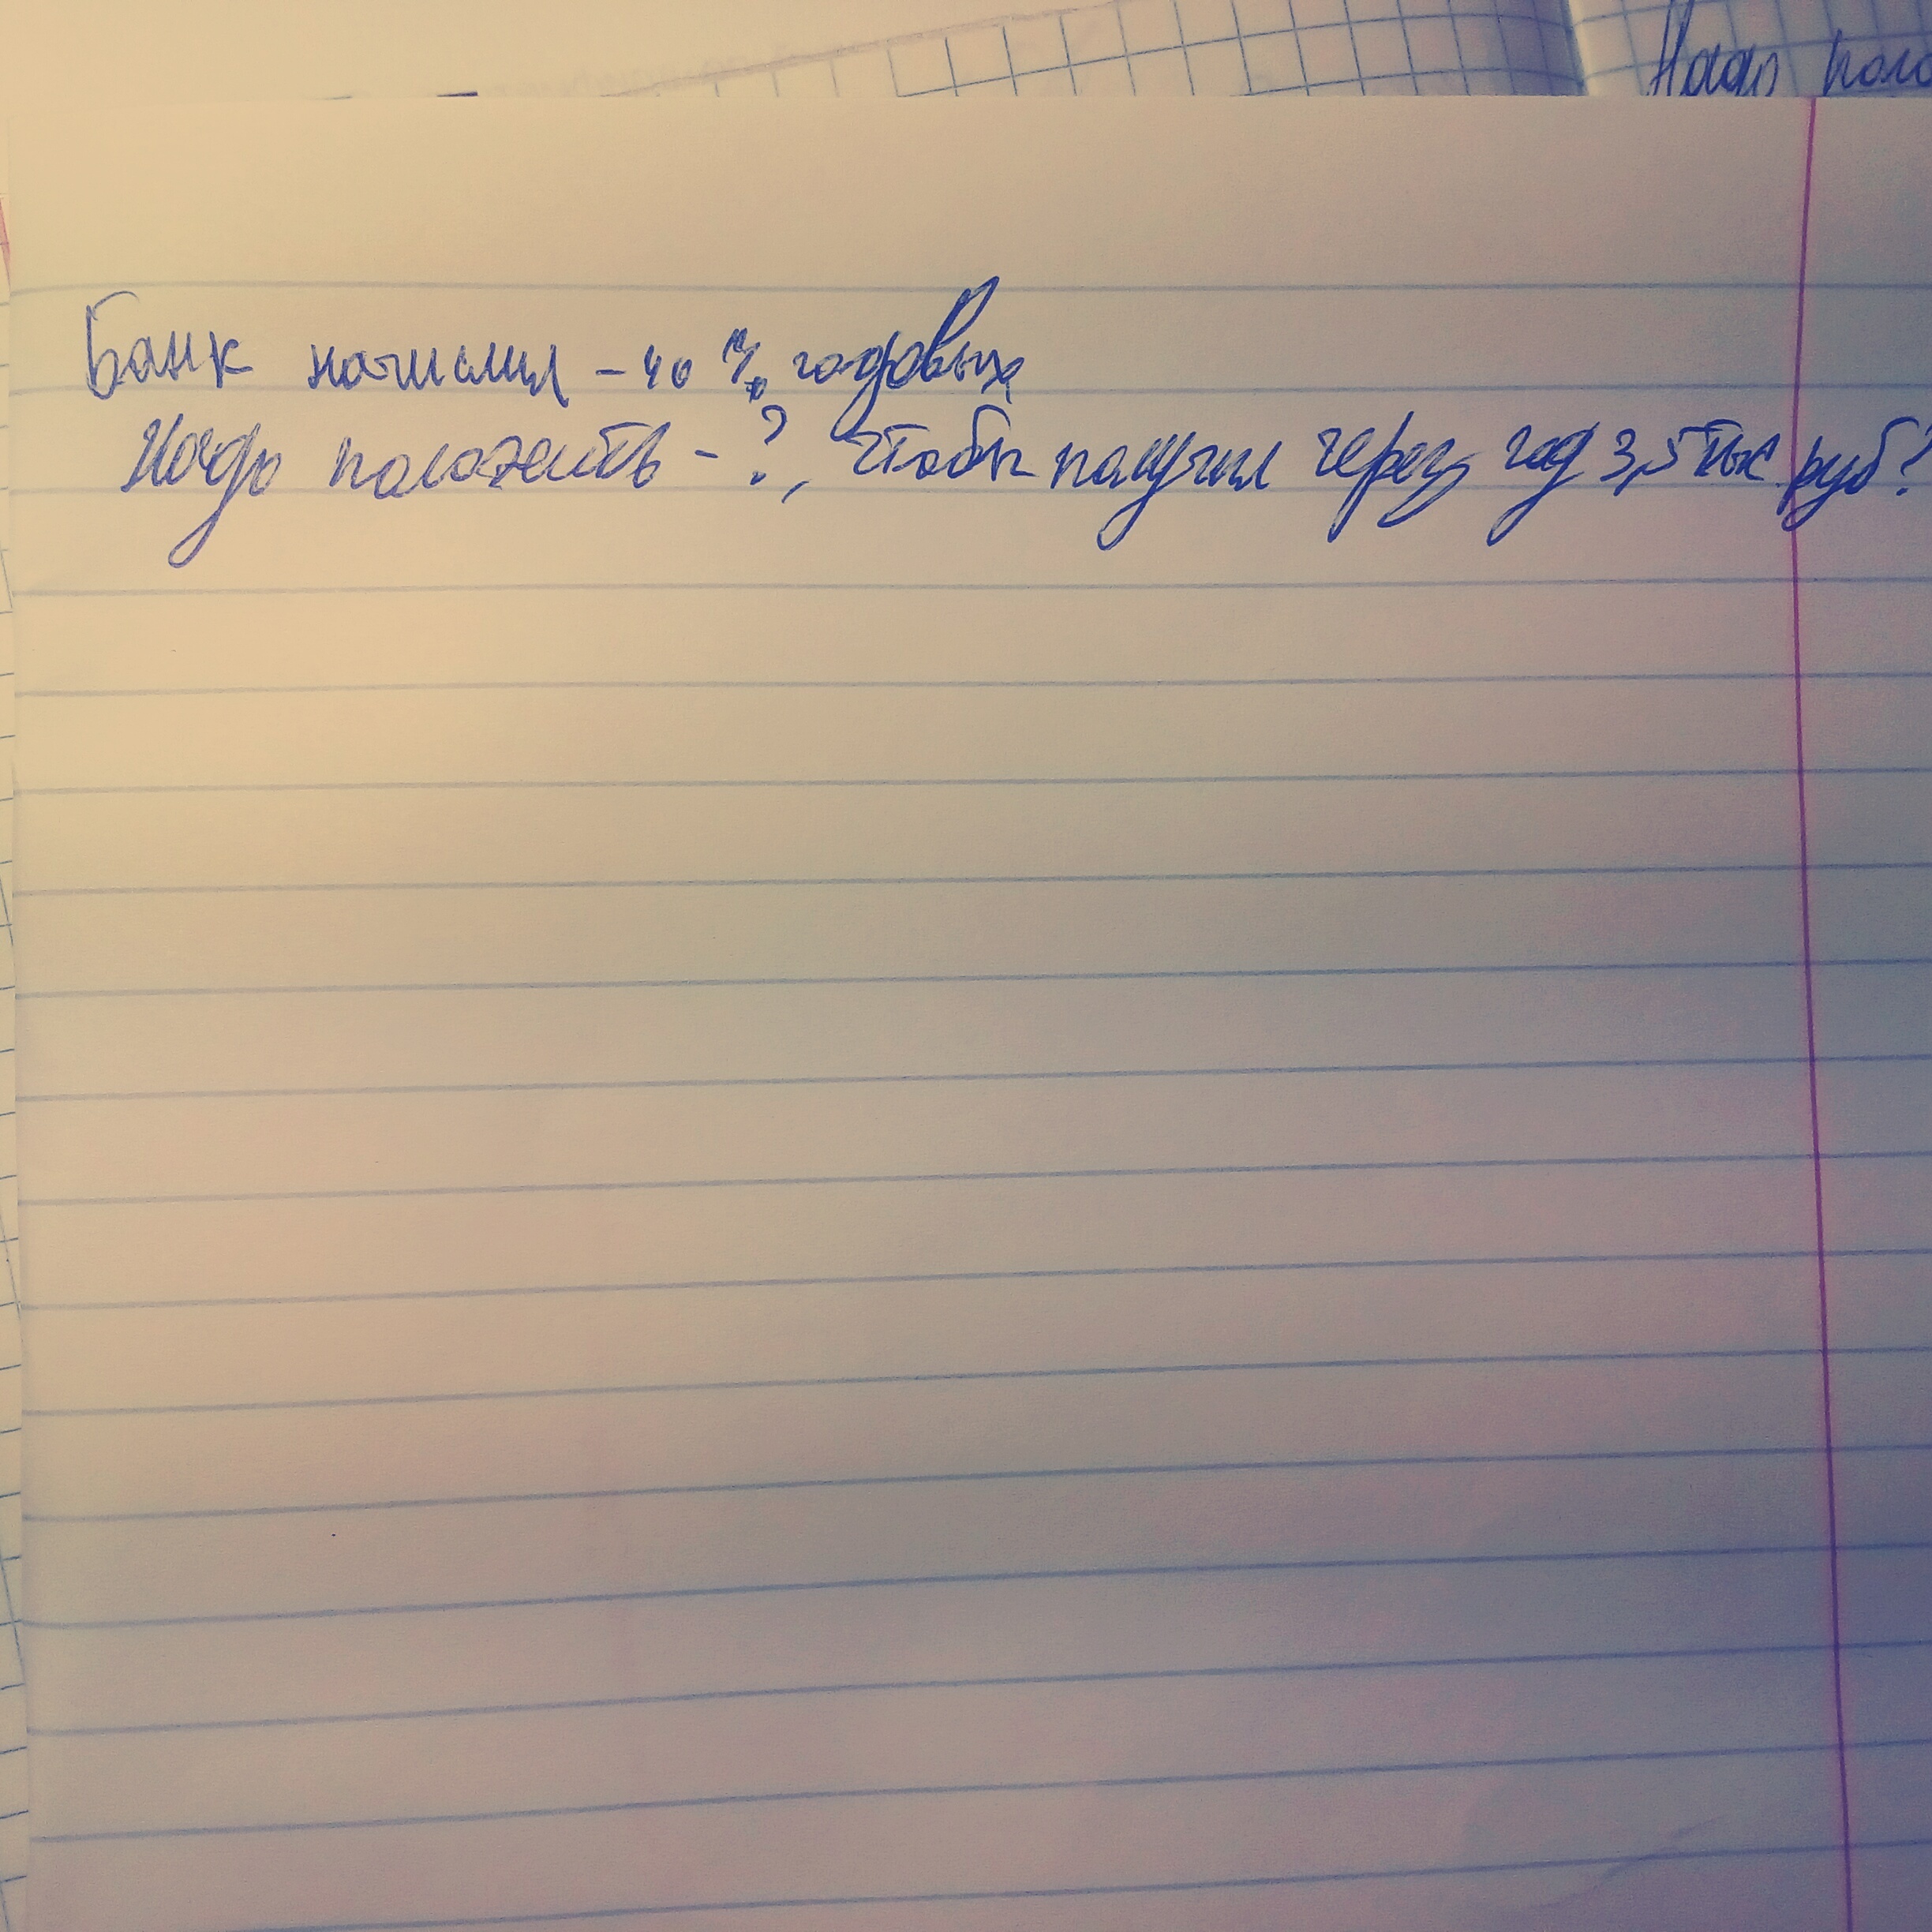 Надо поло
Банк начислил - 40 % годовых
Надо положить - ?, чтобы получил через год 3,5 тыс. руб?